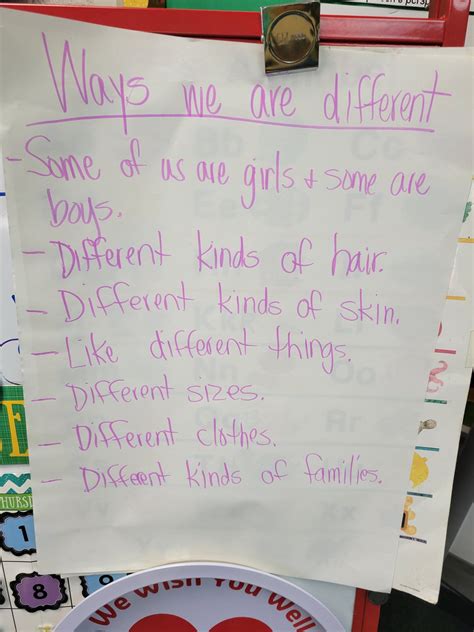 Ways we are different
- Some of us are girls & some are
boys.
- Different kinds of hair.
- Different kinds of skin.
- Like different things.
- Different sizes.
- Different clothes.
- Different kinds of families.
Bb
Cc
Ee
Ff
Nn
Oo
Rr
THURSD
1
8
We Wish You Well